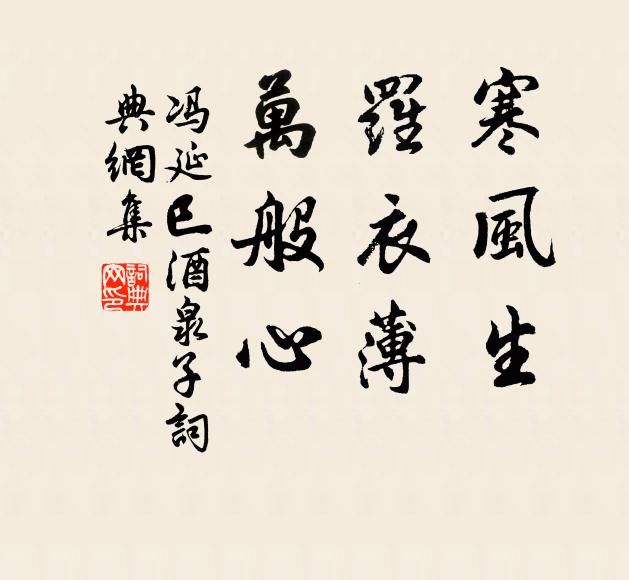 寒風生
羅衣薄
萬般心
冯延巳酒泉子詞
典網集
詞典
网印